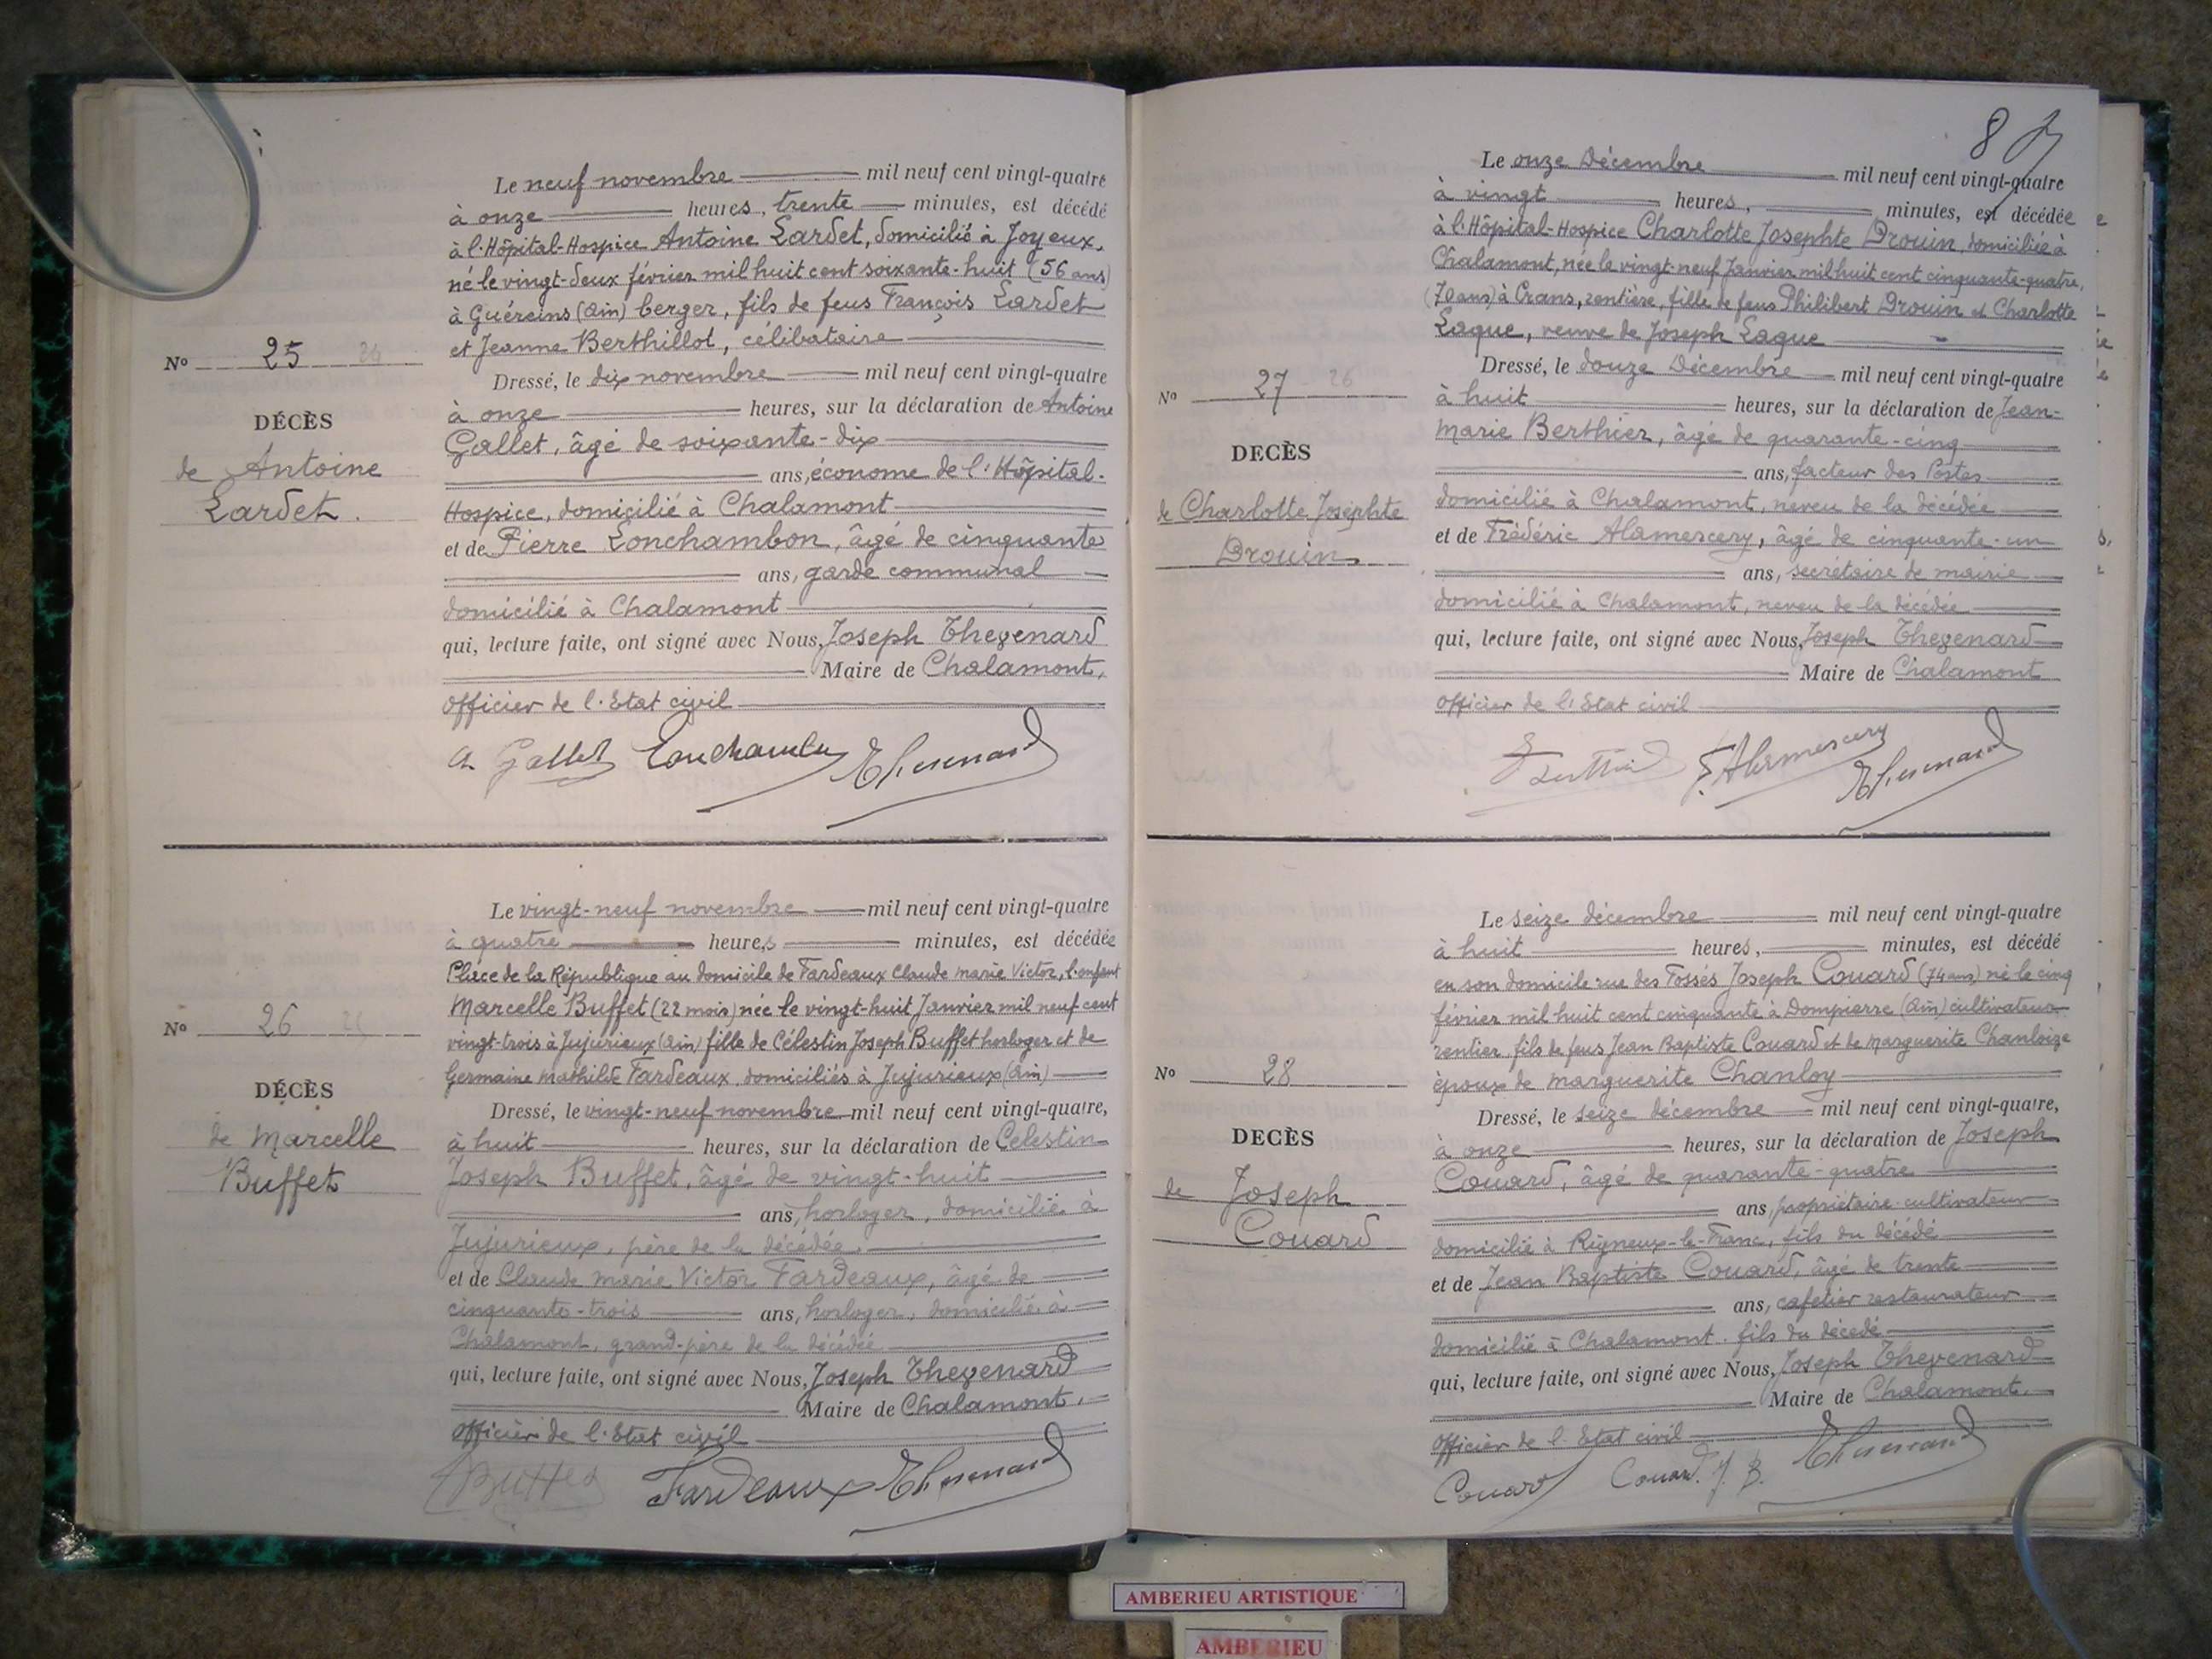 Le neuf novembre mil neuf cent vingt-quatre
à onze heures, trente minutes, est décédé
à l'Hôpital-Hospice Antoine Lardet, domicilié à Joyeux,
né le vingt-deux février mil huit cent soixante-huit (56 ans)
à Guéreins (Ain) berger, fils de feus François Lardet
et Jeanne Berthillot, célibataire
Dressé, le dix novembre mil neuf cent vingt-quatre
à onze heures, sur la déclaration de Antoine
Gallet, âgé de soixante-dix
ans, économe de l'Hôpital-
Hospice, domicilié à Chalamont
et de Pierre Lonchambon, âgé de cinquante
ans, garde communal
domicilié à Chalamont
qui, lecture faite, ont signé avec Nous, Joseph Thevenard
Maire de Chalamont,
officier de l'Etat civil
A. Gallet Lonchambon Thevenard
No 25 24
DÉCÈS
de Antoine
Lardet.
Le vingt-neuf novembre mil neuf cent vingt-quatre
à quatre heures minutes, est décédée
Place de la République au domicile de Fardeaux Claude Marie Victor, l'enfant
Marcelle Buffet (22 mois) née le vingt-huit Janvier mil neuf cent
vingt-trois à Jujurieux (Ain) fille de Célestin Joseph Buffet horloger et de
Germaine Mathilde Fardeaux, domiciliés à Jujurieux (Ain)
Dressé, le vingt-neuf novembre mil neuf cent vingt-quatre,
à huit heures, sur la déclaration de Célestin
Joseph Buffet, âgé de vingt-huit
ans, horloger, domicilié à
Jujurieux, père de la décédée.
et de Claude Marie Victor Fardeaux, âgé de
cinquante-trois ans, horloger, domicilié à
Chalamont, grand-père de la décédée.
qui, lecture faite, ont signé avec Nous, Joseph Thevenard
Maire de Chalamont.
officier de l'Etat civil
Buffet Fardeaux Thevenard
No 26
DÉCÈS
de Marcelle
Buffet
8
Le onze Décembre mil neuf cent vingt-quatre
à vingt heures, minutes, est décédée
à l'Hôpital-Hospice Charlotte Josephte Drouin, domiciliée à
Chalamont, née le vingt-neuf Janvier mil huit cent cinquante-quatre,
(70 ans) à Crans, rentière, fille de feus Philibert Drouin et Charlotte
Laque, veuve de Joseph Laque
Dressé, le douze Décembre mil neuf cent vingt-quatre
à huit heures, sur la déclaration de Jean-
Marie Berthier, âgé de quarante-cinq
ans, facteur des Postes
domicilié à Chalamont, neveu de la décédée
et de Frédéric Alamercery, âgé de cinquante-un
ans, secrétaire de mairie
domicilié à Chalamont, neveu de la décédée
qui, lecture faite, ont signé avec Nous, Joseph Thevenard
Maire de Chalamont
officier de l'Etat civil
F. Alamercery Thevenard
No 27 26
DECÈS
de Charlotte Josephte
Drouin
Le seize décembre mil neuf cent vingt-quatre
à huit heures, minutes, est décédé
en son domicile rue des Fossés Joseph Couard (74 ans) né le cinq
février mil huit cent cinquante à Dompierre (Ain) cultivateur
rentier, fils de feus Jean Baptiste Couard et de Marguerite Chanloize
époux de Marguerite Chanloy
Dressé, le seize décembre mil neuf cent vingt-quatre,
à onze heures, sur la déclaration de Joseph
Couard, âgé de quarante-quatre
ans, propriétaire-cultivateur
domicilié à Rigneux-le-Franc, fils du décédé
et de Jean Baptiste Couard, âgé de trente
ans, cafetier restaurateur
domicilié à Chalamont. fils du décédé
qui, lecture faite, ont signé avec Nous, Joseph Thevenard
Maire de Chalamont.
officier de l'Etat civil
Couard Couard. J. B. Thevenard
No 28
DECÈS
de Joseph
Couard
AMBERIEU ARTISTIQUE
AMBERIEU